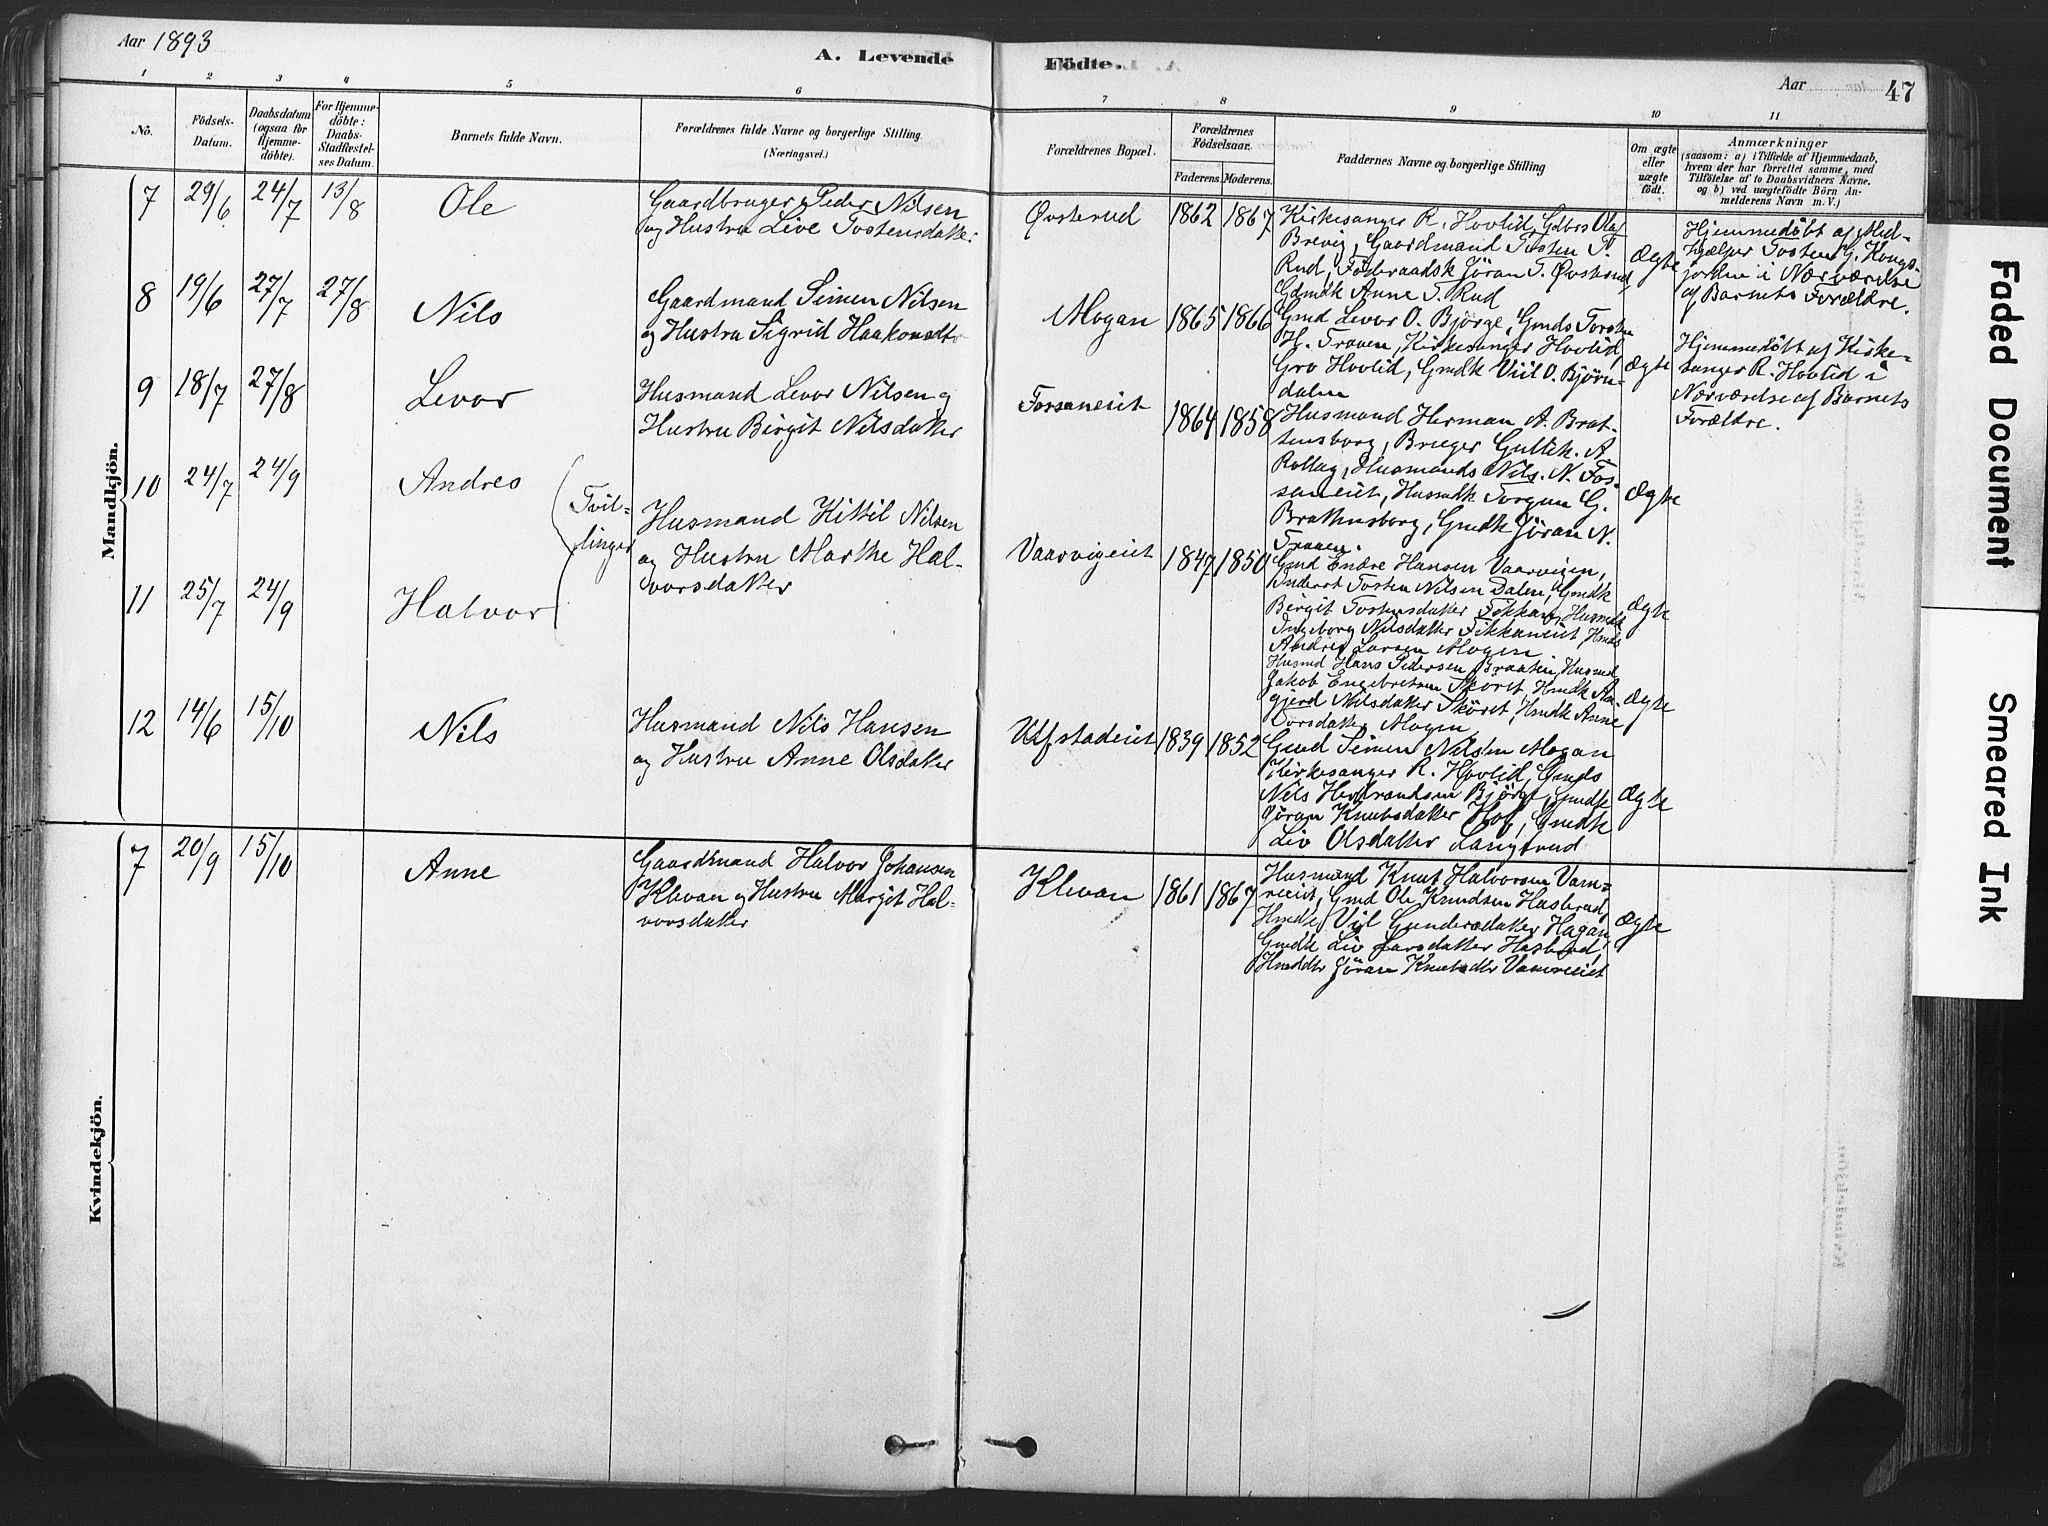 Aar 1893
A. Levende Födte.
Aar
47
1 2 3 4 5 6 7 8 9 10 11
No.
Födsels-
Datum.
Daabsdatum
(ogsaa for
Hjemme-
döbte).
For Hjemme-
döbte:
Daabs-
Stadfæstel-
ses Datum.
Barnets fulde Navn.
Forældrenes fulde Navne og borgerlige Stilling.
(Næringsvei.)
Forældrenes Bopæl.
Forældrenes
Födselsaar.
Faderens. Moderens.
Faddernes Navne og borgerlige Stilling
Om ægte
eller
uægte
födt.
Anmærkninger
(saasom: a) i Tilfælde af Hjemmedaab,
hvem der har forrettet samme, med
Tilföielse af to Daabsvidners Navne.
og b) ved uægtefödte Börn An-
melderens Navn m. V.)
Mandkjön.
7 29/6 24/7 13/8 Ole
Gaardbruger Peder Nilsen
og Hustru Live Tostensdatter
Øvsterud 1862 1867
Kirkesanger R. Hovlid, Gdbrs Olaf
Brevig, Gaardmand Tosten T.
Rud, Föderaadsk Jöran T. Øvsterud,
Gdmdk Anne T. Rud
Ægte
Hjemmedöbt af Med-
hjælper Tosten G. Kongs-
jorden i Nærværelse
af Barnets Forældre.
8 19/6 27/7 27/8 Nils
Gaardmand Simen Nilsen
og Hustru Sigrid Haakonsdtr
Mogan 1865 1866
Gmd Levor O. Bjørge, Gmds Torsten
H. Traaen, Kirkesanger Hovlid,
Gro Hovlid, Gmdk Viil O. Bjørn-
dalen
Ægte
Hjemmedöbt af Kirke-
sanger R. Hovlid i
Nærværelse af Barnets
Forældre.
9 18/7 27/8 Levor
Husmand Levor Nilsen og
Hustru Birgit Nilsdatter
Fossaneiet 1864 1858
Husmand Herman A. Brat-
tensborg, Bruger Guttik. A.
Rollag, Husmands Nils. N. Fos-
saneiet, Husmdk Torgun G.
Brattensborg, Gmdk Jöran N.
Traaen.
Ægte
10 24/7 24/9 Andres
11 25/7 24/9 Halvor
Tvil-
linger
Husmand Kittil Nilsen
og Hustru Marthe Hal-
vorsdatter
Vaarvigeiet 1847 1850
Gmd Endre Hansen Vaarvigen,
Inderst Tosten Nilsen Dalen, Gmdk
Birgit Tostensdatter Fikkan, Husmdk
Ingeborg Nilsdatter Fikkaneiet, Hmds
Andres Larsen Mogen
Ægte
Husmd Hans Pedersen Braaten, Husmd
Jakob Engebretsen Sköret, Hmdk An-
gjerd Nilsdatter Sköret, Hmdk Anne
Torsdatter Mogen
Ægte
12 14/6 15/10 Nils
Husmand Nils Hansen
og Hustru Anne Olsdatter
Ulfstadeiet 1839 1852
Gmd Simen Nilsen Mogan
Kirkesanger R. Hovlid, Gmds
Nils Herbrandsen Bjørge, Gmdk
Jöran Knutsdatter Hof, Gmdk
Liv Olsdatter Langerud
Ægte
Kvindekjön.
7 20/9 15/10 Anne
Gaardmand Halvor Johansen
Klevan og Hustru Margit Hal-
vorsdatter
Klevan 1861 1867
Husmand Knut Halvorsen Vam-
reeiet, Gmd Ole Knudsen Hasterud,
Hmdk Vil Gundersdatter Hagan,
Gmdk Liv Larsdatter Hasterud,
Hmddtr Jöran Knutsdtr Vamreeiet
Ægte
Faded Document
Smeared Ink